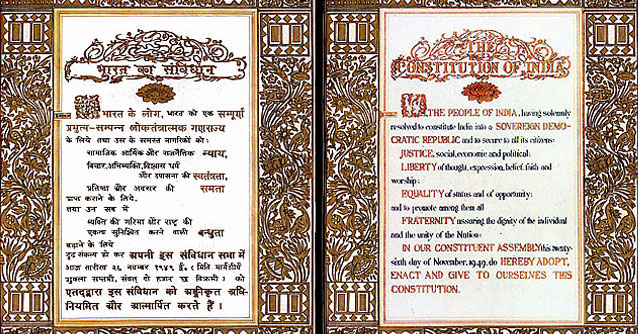 भारत का संविधान
हम, भारत के लोग, भारत को एक सम्पूर्ण
प्रभुत्व-सम्पन्न लोकतंत्रात्मक गणराज्य
के लिये तथा उस के समस्त नागरिकों को:
सामाजिक आर्थिक और राजनैतिक न्याय,
विचार, अभिव्यक्ति, विश्वास धर्म
और उपासना की स्वतंत्रता,
प्रतिष्ठा और अवसर की समता
प्राप्त कराने के लिये,
तथा उन सब में
व्यक्ति की गरिमा और राष्ट्र की
एकता सुनिश्चित करने वाली बन्धुता
बढ़ाने के लिये
दृढ़ संकल्प हो कर अपनी इस संविधान सभा में
आज तारीख २६ नवम्बर १९४९ ई॰ (मिति मार्गशीर्ष
शुक्ला सप्तमी, संवत् दो हज़ार छः विक्रमी) को
एतद्द्वारा इस संविधान को अङ्गीकृत अधि-
नियमित और आत्मार्पित करते हैं।
THE
CONSTITUTION OF INDIA
WE, THE PEOPLE OF INDIA, having solemnly
resolved to constitute India into a SOVEREIGN DEMO-
CRATIC REPUBLIC and to secure to all its citizens:
JUSTICE, social, economic and political;
LIBERTY of thought, expression, belief, faith and
worship;
EQUALITY of status and of opportunity;
and to promote among them all
FRATERNITY assuring the dignity of the individual
and the unity of the Nation;
IN OUR CONSTITUENT ASSEMBLY this twenty-
sixth day of November, 1949, do HEREBY ADOPT,
ENACT AND GIVE TO OURSELVES THIS
CONSTITUTION.